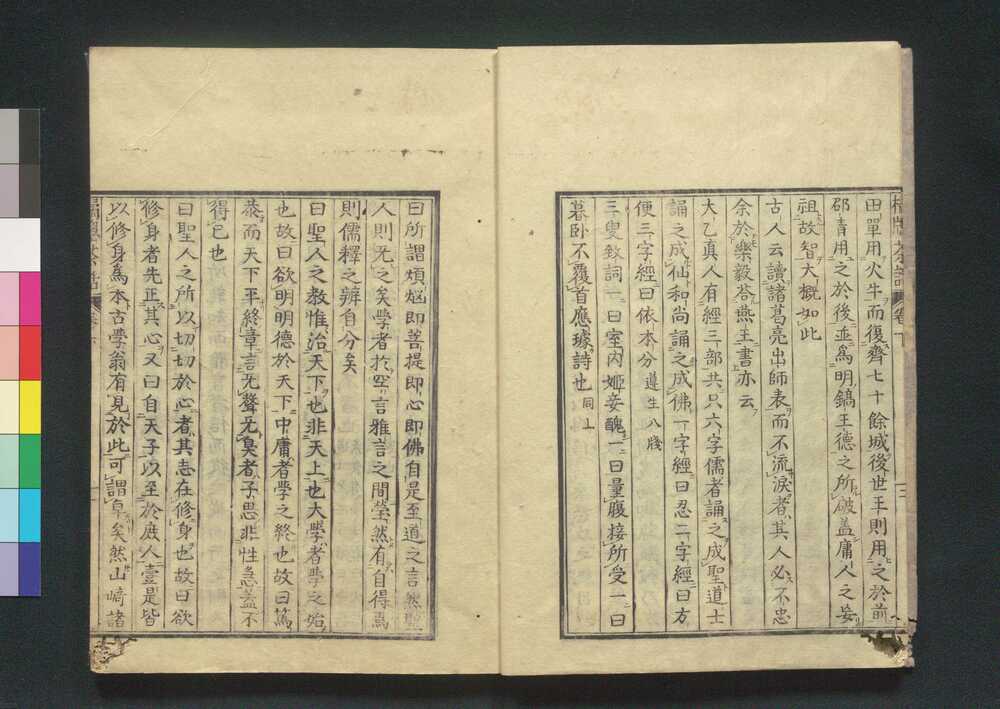 田單用火牛而復齊七十餘城後世王則用之於前
邵青用之於後並爲明鎬王德之所破蓋庸人之妄
祖故智大概如此
古人云讀諸葛亮出師表而不流淚者其人必不忠
余於樂毅答燕王書亦云
大乙眞人有經三部共只六字儒者誦之成聖道士
誦之成仙和尚誦之成佛一字經曰忍二字經曰方
便三字經曰依本分 遵生八牋
三叟致詞一曰室内姬妾醜一曰量腹接所受一曰
暮卧不覆首應璩詩也 同上
曰所謂煩惱即菩提即心即佛自是至道之言然聖
人則无之矣學者於空言雅言之間瑩然有自得焉
則儒釋之辨自分矣
曰聖人之教惟治天下也非天上也大學者學之始
也故曰欲明明德於天下中庸者學之終也故曰篤
恭而天下平終章言无聲无臭者子思非性急蓋不
得已也
曰聖人之所以切切於心者其志在修身也故曰欲
修身者先正其心又曰自天子以至於庶人壹是皆
以修身爲本古學翁有見於此可謂卓矣然山﨑諸